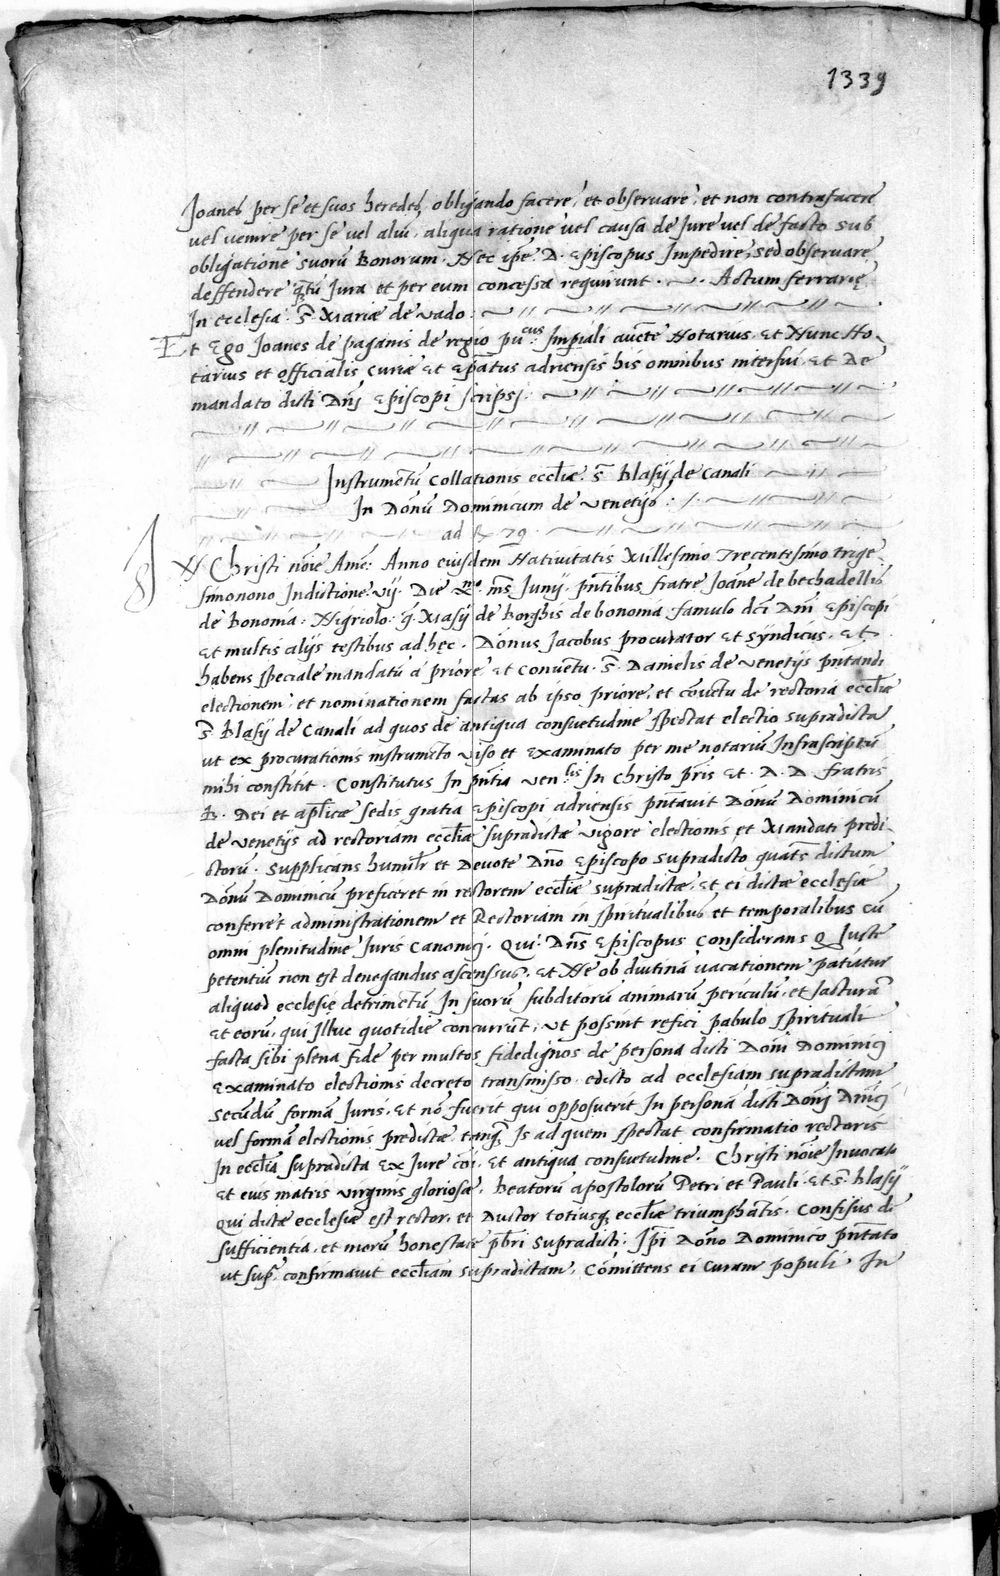 1339
Joanes per se et suos heredes, obligando facere, et observare, et non contrafacere
vel venire per se vel aliū, aliqua ratione vel causa de Jure vel de facto sub
obligatione suorū Bonorum. Nec ip̄e D. Episcopus Impedire, sed observare
deffendere q̄tū Jura et per eum concessa requirunt. Actum ferrarie
In ecclesia. S. Mariæ de vado:
Et Ego Joanes de paganis de regio pu.cus Imp̄iali aucte Notarius. Et Nunc No-
tarius et officialis curiæ et Ep̄atus adriensis his omnibus interfui et de
mandato dicti Dn̄j Episcopi scripsj:
Instrumētū collationis eccl̄iæ. S. Blasij de Canali
In Dōnū Dominicum de venetijs:
ad 79
IN Christi nōie Amē: Anno eiusdem Nativitatis Millesimo Trecentesimo trige
simonono Indictione. vij. Die mo. ms̄ Junij. p̄ntibus fratre Joāne de bechadellis
de Bononia. Nigriolo. q̄. Masij de Borghis de bononia. famulo dc̄i Dn̄i Episcopi
et multis alijs testibus ad hec. Dōnus Jacobus procurator et syndicus. et
habens speciale mandatū a priore et conventu. S. Danielis de venetijs p̄ntandi
electionem et nominationem factas ab ipso priore, et cōvētu de rectoria eccl̄iæ
S. Blasij de Canali ad quos de antiqua consuetudine spectat electio supradicta
ut ex procurationis instrumēto viso et examinato per me notariū Infrascriptū
mihi constitit. Constitutus In p̄ntia ven.lis In christo p̄ris et. D. D. fratris
B. Dei et ap̄licæ sedis gratia Episcopi adriensis p̄ntavit Dōnū Dominicū
de venetijs ad rectoriam eccl̄iæ supradictæ vigore electionis et Mandati predi-
ctorū. Supplicans humil̄r et Devote Dn̄o Episcopo supradicto quat̄s dictum
Dōnū Dominicū preficeret in rectorem eccl̄iæ supradictæ, et ei dictæ ecclesiæ
conferret administrationem et Rectoriam in spiritualibus et temporalibus cū
omni plenitudine Juris Canonici. Qui Dn̄s Episcopus considerans Q Juste
petentiū non est denegandus ascensus, et Ne ob diutinā vacationem patiatur
aliquod ecclesie detrimētū In suorū subditorū animarū periculū, et Jacturā
et eorū, qui Illuc quotidie concurrūt, ut possint refici pabulo spirituali
facta sibi plena fide per multos fidedignos de persona dicti Dōni Dominicj
Examinato electionis decreto transmisso edicto ad ecclesiam supradictam
secūdū formā Juris, et nō fuerit qui opposuerit In personā dicti Dōnj Dn̄icj
vel formā electionis predictæ, tanq̄ Is ad quem spectat confirmatio rectoris
In eccl̄ia supradicta ex Jure cōi, et antiqua consuetudine. Christi nōie Invocato
et eius matris virginis gloriosæ, Beatorū apostolorū Petri et Pauli et s. blasij
qui dictæ ecclesiæ est rector, et Auctor totiusq. eccl̄iæ triumphātis. Confisus de
sufficientia, et morū honestate p̄bri supradicti. Ip̄i Dōno Dominico p̄ntato
ut sup̄. confirmavit eccl̄iam supradictam, Cōmittens ei Curam populi In